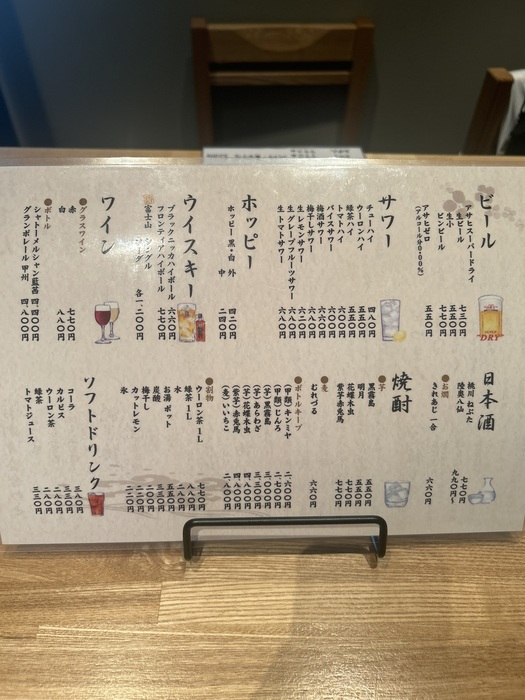 ビール
アサヒスーパードライ
生ビール 七三〇円
生小 五五〇円
ビンビール 七七〇円
アサヒゼロ 五五〇円
(アルコール分0.00%)
サワー
チューハイ 四八〇円
ウーロンハイ 五五〇円
緑茶ハイ 五五〇円
トマトハイ 五五〇円
バイスサワー
梅酒サワー
梅干しサワー
生レモンサワー
生グレープフルーツサワー
生トマトサワー 六八〇円
ホッピー
ホッピー 黒・白 外 四二〇円
中 二四〇円
ウイスキー
ブラックニッカハイボール 六六〇円
フロンティアハイボール 七七〇円
富士山 シングル
各一、二〇〇円
ワイン
●グラスワイン
赤 七七〇円
白 八八〇円
●ボトル
シャトーメルシャン藍茜 四、四〇〇円
グランポレール 甲州 四、八〇〇円
日本酒
桃川 ねぶた 七七〇円
陸奥八仙 九九〇円〜
●お燗
きれあじ 一合 六六〇円
焼酎
●芋
黒霧島 五五〇円
明月 五五〇円
花蝶木虫 七七〇円
紫芋赤兎馬 七七〇円
●麦
むれづる 六六〇円
●ボトルキープ
(甲類)キンミヤ 二、六〇〇円
(甲類)じんろ 二、七〇〇円
(芋)黒霧島 三、〇〇〇円
(芋)あらわざ 三、三〇〇円
(芋)花蝶木虫 四、八〇〇円
(芋)紫芋赤兎馬 四、八〇〇円
(麦)いいちこ 二、八〇〇円
●割物
ウーロン茶 1L 七七〇円
緑茶 1L 八八〇円
水 二二〇円
お湯ポット 五五〇円
炭酸 三三〇円
梅干し 二二〇円
カットレモン 二二〇円
氷 二二〇円
ソフトドリンク
コーラ 三八〇円
カルピス 三三〇円
ウーロン茶 二八〇円
緑茶 三三〇円
トマトジュース 三三〇円